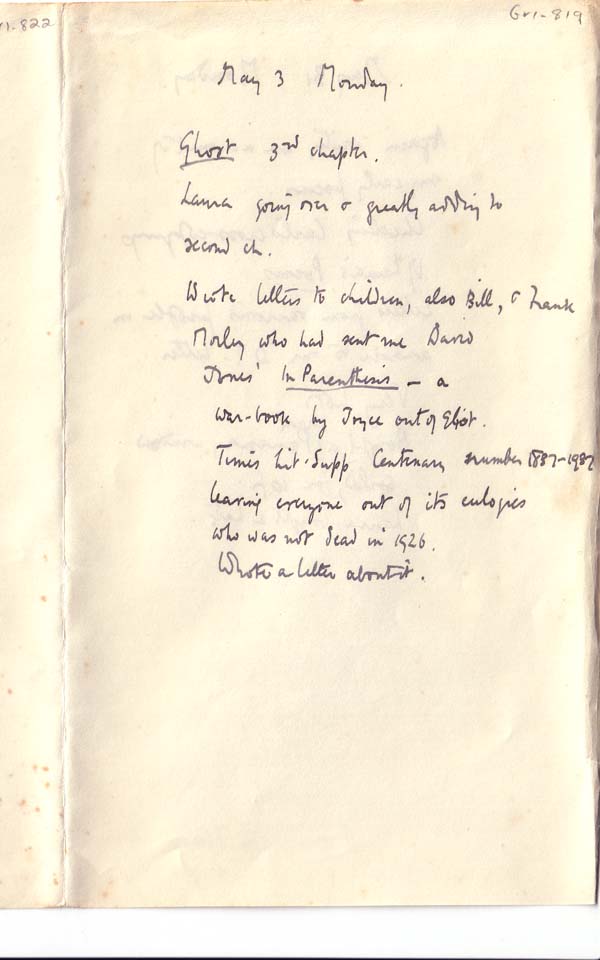 r1-822
Gr1-819
May 3 Monday.
Ghost 3rd chapter.
Laura going over & greatly adding to
second ch.
Wrote letters to children, also Bill, & Frank
Morley who had sent me David
Jones' In Parenthesis – a
war-book by Joyce out of Eliot.
Times Lit. Supp Centenary number 1837-1937
leaving everyone out of its eulogies
who was not dead in 1926.
Wrote a letter about it.